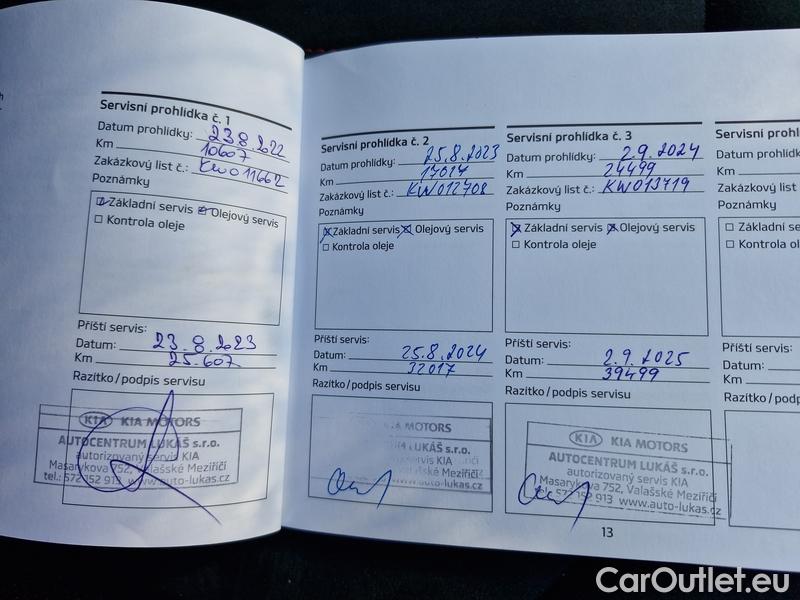 Servisní prohlídka č. 1
Datum prohlídky: 23.8.2022
Km 10607
Zakázkový list č.: KW011662
Poznámky
Základní servis Olejový servis
Kontrola oleje
Příští servis:
Datum: 23.8.2023
Km 25.607
Razítko/podpis servisu
KIA KIA MOTORS
AUTOCENTRUM LUKÁŠ s.r.o.
autorizovaný servis KIA
Masarykova 752, Valašské Meziříčí
tel.: 572 152 913 www.auto-lukas.cz
Servisní prohlídka č. 2
Datum prohlídky: 25.8.2023
Km 17017
Zakázkový list č.: KW012708
Poznámky
Základní servis Olejový servis
Kontrola oleje
Příští servis:
Datum: 25.8.2024
Km 32017
Razítko/podpis servisu
KIA MOTORS
LUKÁŠ s.r.o.
servis KIA
Valašské Meziříčí
www.auto-lukas.cz
Servisní prohlídka č. 3
Datum prohlídky: 2.9.2024
Km 24499
Zakázkový list č.: KW013719
Poznámky
Základní servis Olejový servis
Kontrola oleje
Příští servis:
Datum: 2.9.2025
Km 39499
Razítko/podpis servisu
KIA KIA MOTORS
AUTOCENTRUM LUKÁŠ s.r.o.
autorizovaný servis KIA
Masarykova 752, Valašské Meziříčí
tel.: 572 152 913 www.auto-lukas.cz
Servisní prohl
Datum prohlídky
Km
Zakázkový list
Poznámky
Základní se
Kontrola o
Příští servis:
Datum:
Km
Razítko/po
13
CarOutlet.eu